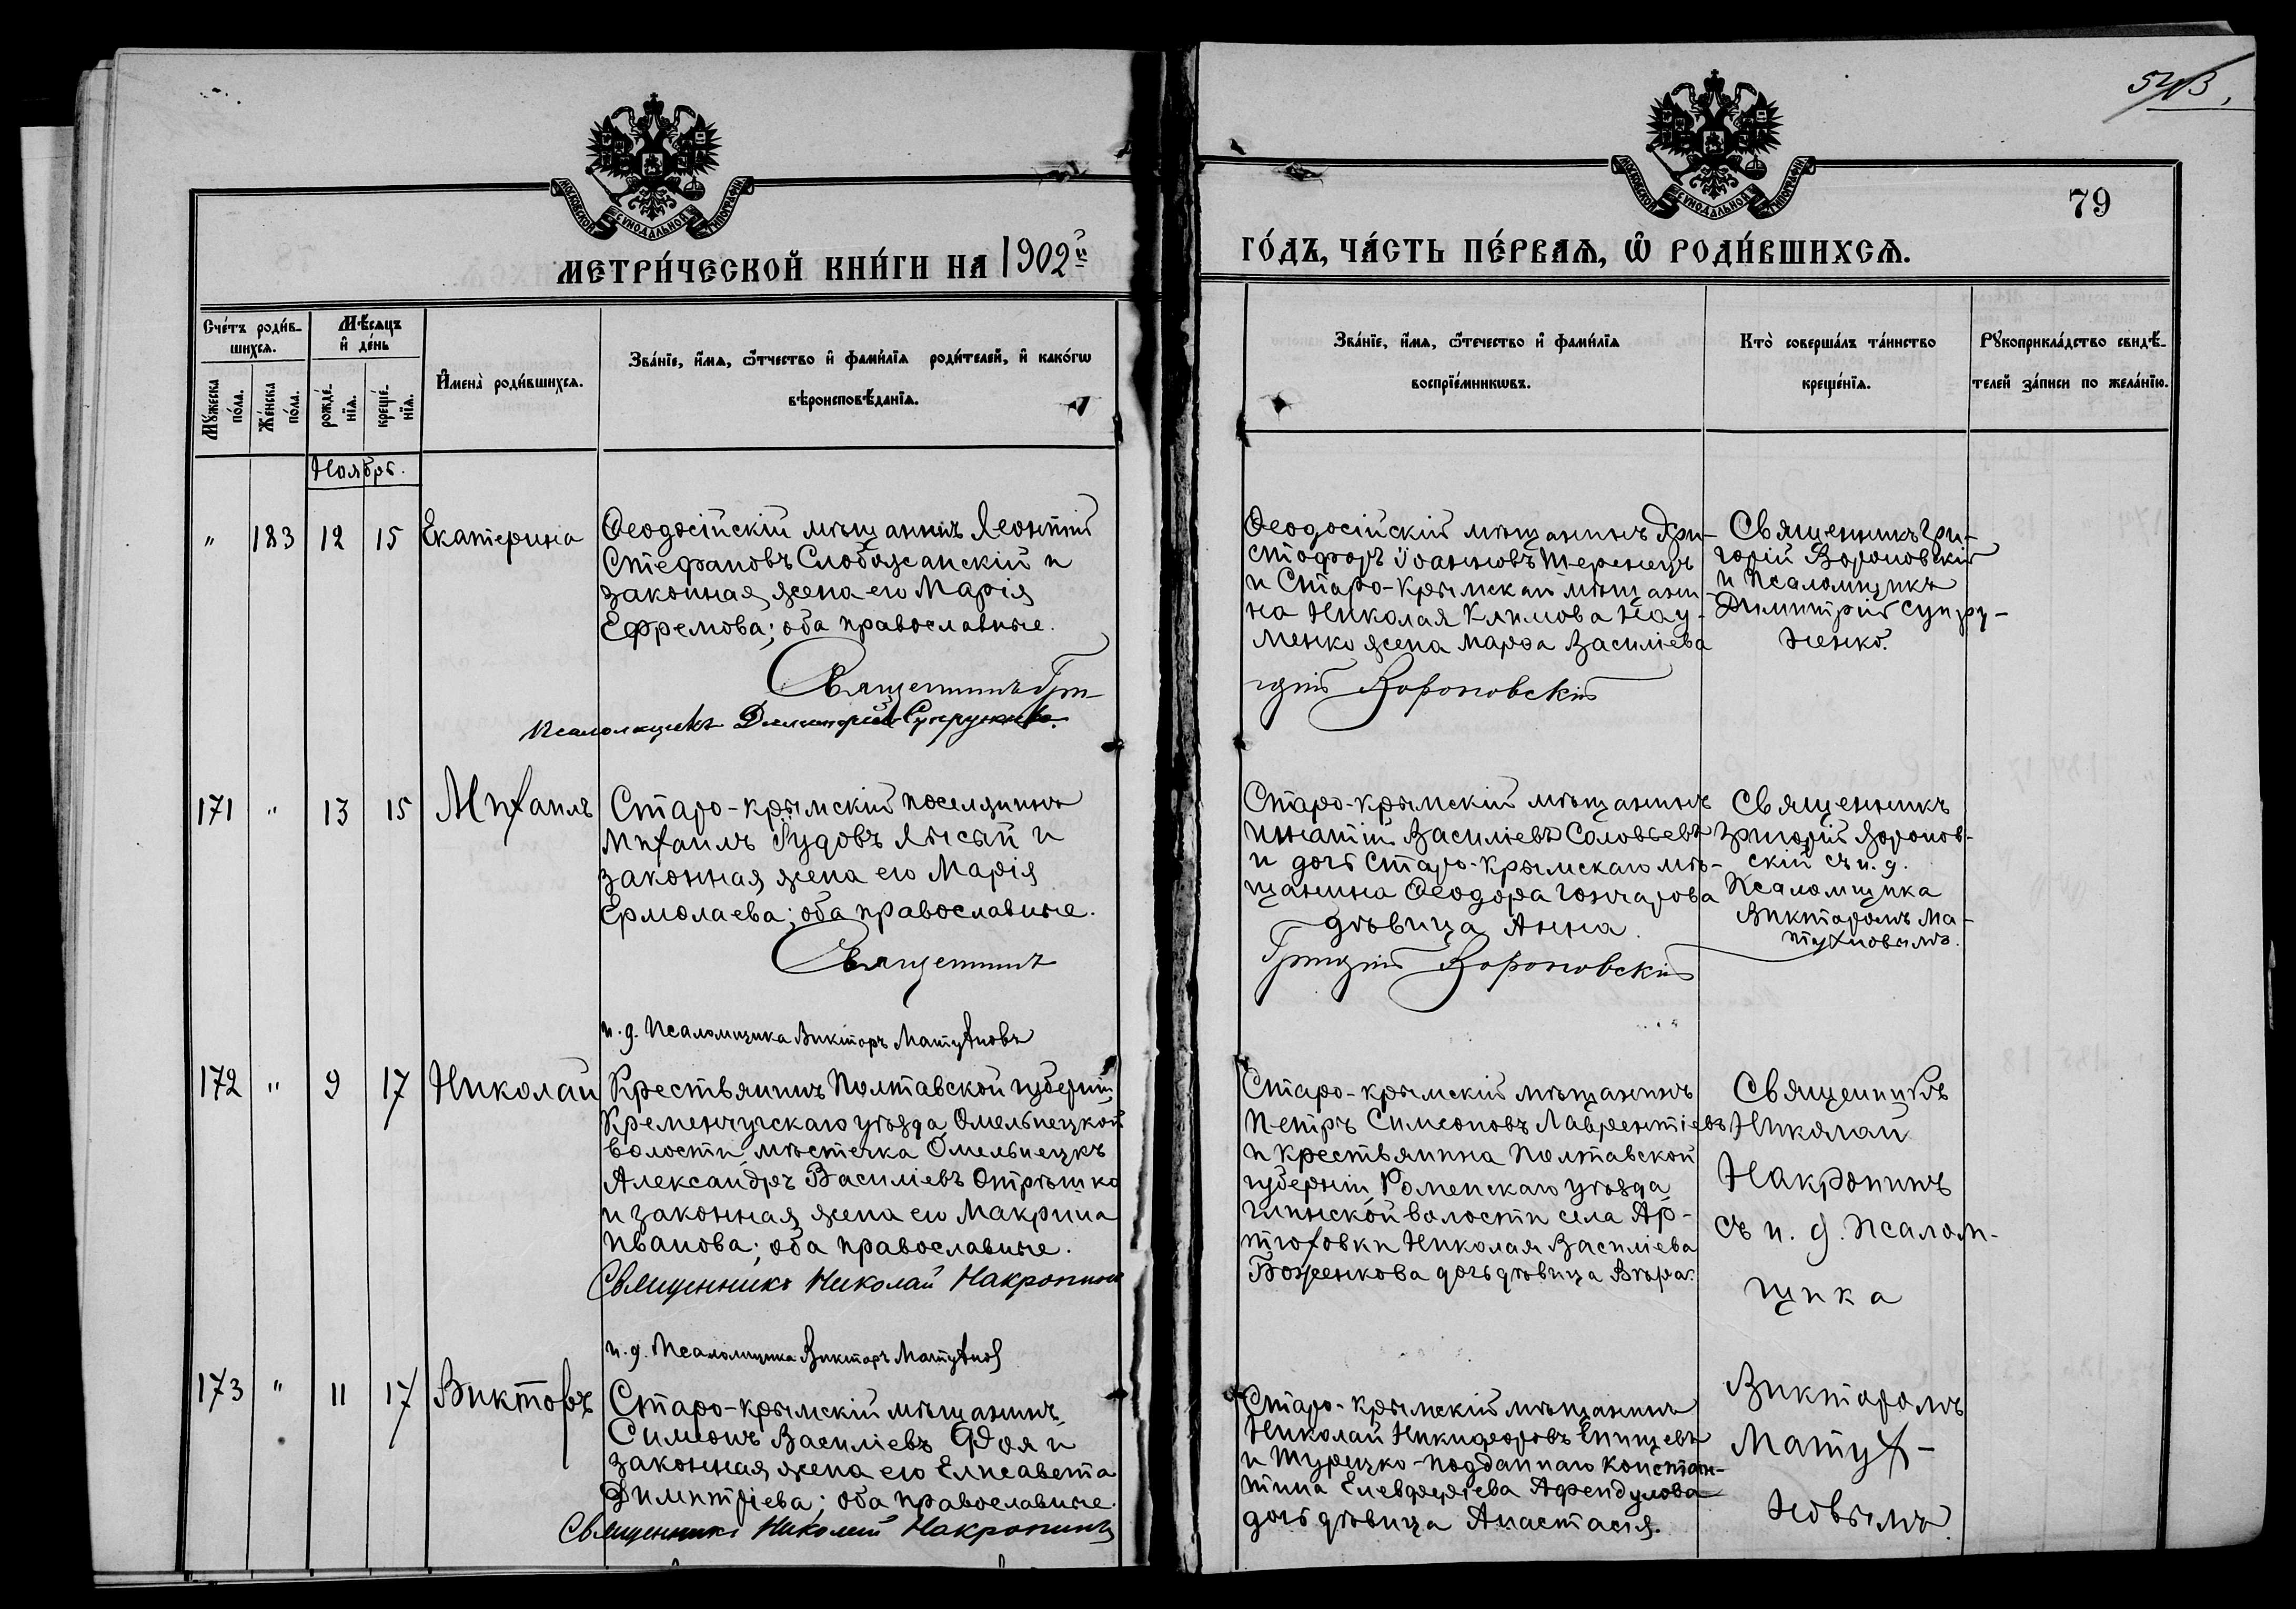 543.
МОСКОВСКОЙ СѴНОДАЛЬНОЙ ТИПОГРАФІИ
МОСКОВСКОЙ СѴНОДАЛЬНОЙ ТИПОГРАФІИ
79
МЕТРИ́ЧЕСКОЙ КНИ́ГИ НА 1902й
ГО́ДЪ, ЧА́СТЬ ПЕ́РВАѦ, Ѽ РОДИ́ВШИХСѦ.
Сче́тъ роди́в-
шихсѧ.
Мѣ́сѧцъ
и҆ де́нь
Мꙋ́жеска
по́ла.
Же́нска
по́ла.
рожде́-
нїѧ.
креще́-
нїѧ.
И҆мена̀ роди́вшихсѧ.
Зва́нїе, и҆́мѧ, ѻ҆́тчество и҆ фами́лїѧ роди́телей, и҆ како́гѡ
вѣроисповѣ́данїѧ.
Зва́нїе, и҆́мѧ, ѻ҆те́чество и҆ фами́лїѧ
воспрїе́мникѡвъ.
Кто̀ соверша́лъ та́инство
креще́нїѧ.
Рꙋкоприкла́дство свидѣ́-
телей за́писи по жела́нїю.
Ноябрь.
" 183 12 15 Екатерина
Ѳеодосійскій мѣщанинъ Леонтій
Стефановъ Слобожанскій и
законная жена его Марія
Ефремова; оба православные.
Священникъ Гри-
Псаломщикъ Димитрій Супруненко.
Ѳеодосійскій мѣщанинъ Хри-
стофоръ Іоанновъ Теренецъ
и Старо-Крымскаго мѣщани-
на Николая Климова Нау-
менко жена Марѳа Василіева
горій Вороновскій
Священникъ Гри-
горій Вороновскій
и Псаломщикъ
Димитрій Супру-
ненко.
171 " 13 15 Михаилъ
Старо-крымскій поселянинъ
Михаилъ Іудовъ Лысый и
законная жена его Марія
Ермолаева; оба православные.
Священникъ
и. д. Псаломщика Викторъ Матухновъ
Старо-крымскій мѣщанинъ
Игнатій Василіевъ Соловьевъ
и дочь Старо-Крымскаго мѣ-
щанина Ѳеодора Гончарова
дѣвица Анна.
Григорій Вороновскій
Священникъ
Григорій Воронов-
скій съ и. д.
Псаломщика
Викторомъ Ма-
тухновымъ.
172 " 9 17 Николай
Крестьянинъ Полтавской губерніи
Кременчугскаго уѣзда Омельницкой
волости, мѣстечка Омельницкъ
Александръ Василіевъ Отрѣшко
и законная жена его Макрина
Иванова; оба православные.
Священникъ Николай Накропинъ
и. д. Псаломщика Викторъ Матухнов
Старо-крымскій мѣщанинъ
Петръ Симеоновъ Лаврентіевъ
и крестьянина Полтавской
губерніи, Роменскаго уѣзда
Глинской волости села Ар-
тюховки Николая Василіева
Боженкова дочь дѣвица Вѣра.
Священникъ
Николай
Накропинъ
съ и. д. Псалом-
щика
173 " 11 17 Викторъ
Старо-крымскій мѣщанинъ
Симеонъ Василіевъ и
законная жена его Елисавета
Димитріева; оба православные.
Священникъ Николай Накропинъ
Старо-крымскій мѣщанинъ
Николай Никифоровъ Епищевъ
и Турецко-подданнаго Констан-
тина Афендулова
дочь дѣвица Анастасія.
Викторомъ
Матух-
новымъ.